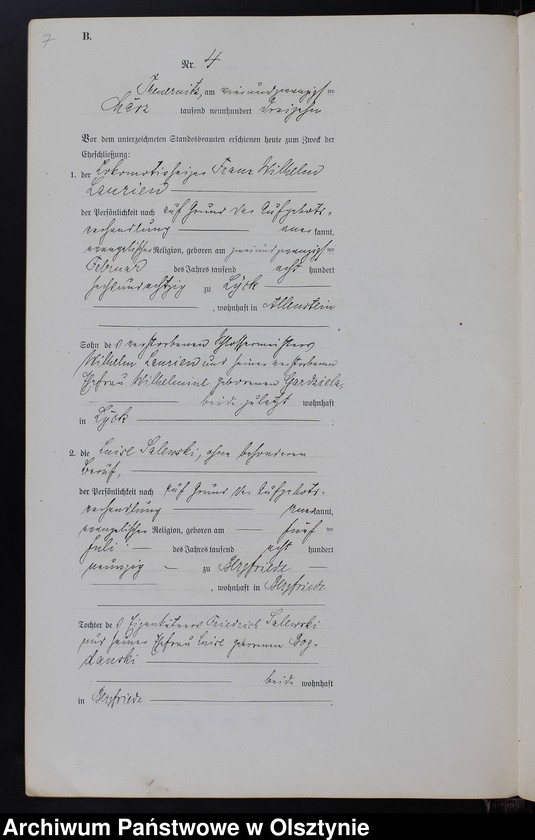 7
B.
Nr. 4
am vierundzwanzigsten
März tausend neunhundert dreizehn
Vor dem unterzeichneten Standesbeamten erschienen heute zum Zweck der
Eheschließung:
1. der Lokomotivheizer Franz Wilhelm
Laurien
der Persönlichkeit nach auf Grund der Aufgebots-
verhandlung anerkannt,
evangelischer Religion, geboren am zweiundzwanzigsten
Februar des Jahres tausend acht hundert
sechsundachtzig zu Lyck
, wohnhaft in Allenstein
Sohn des verstorbenen Schlossermeisters
Wilhelm Laurien und seiner verstorbenen
Ehefrau Wilhelmine geborenen Gardziela,
beide zuletzt wohnhaft
in Lyck
2. die Luise Salewski, ohne besonderen
Beruf,
der Persönlichkeit nach auf Grund der Aufgebots-
verhandlung anerkannt,
evangelischer Religion, geboren am fünften
Juli des Jahres tausend acht hundert
neunzig zu Bergfriede
, wohnhaft in Bergfriede
Tochter des Eigenkätners Friedrich Salewski
und seiner Ehefrau Luise geborenen Bog-
danski
beide wohnhaft
in Bergfriede
Archiwum Państwowe w Olsztynie